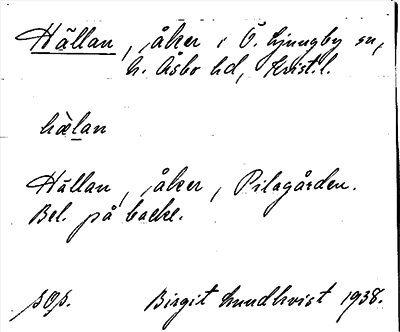 Hällan, åker i Ö. Ljungby sn,
N. Åsbo hd, Krist. l.
hælan
Hällan, åker, Pilagården.
Bel. på backe.
sop. Birgit Lundkvist 1938.